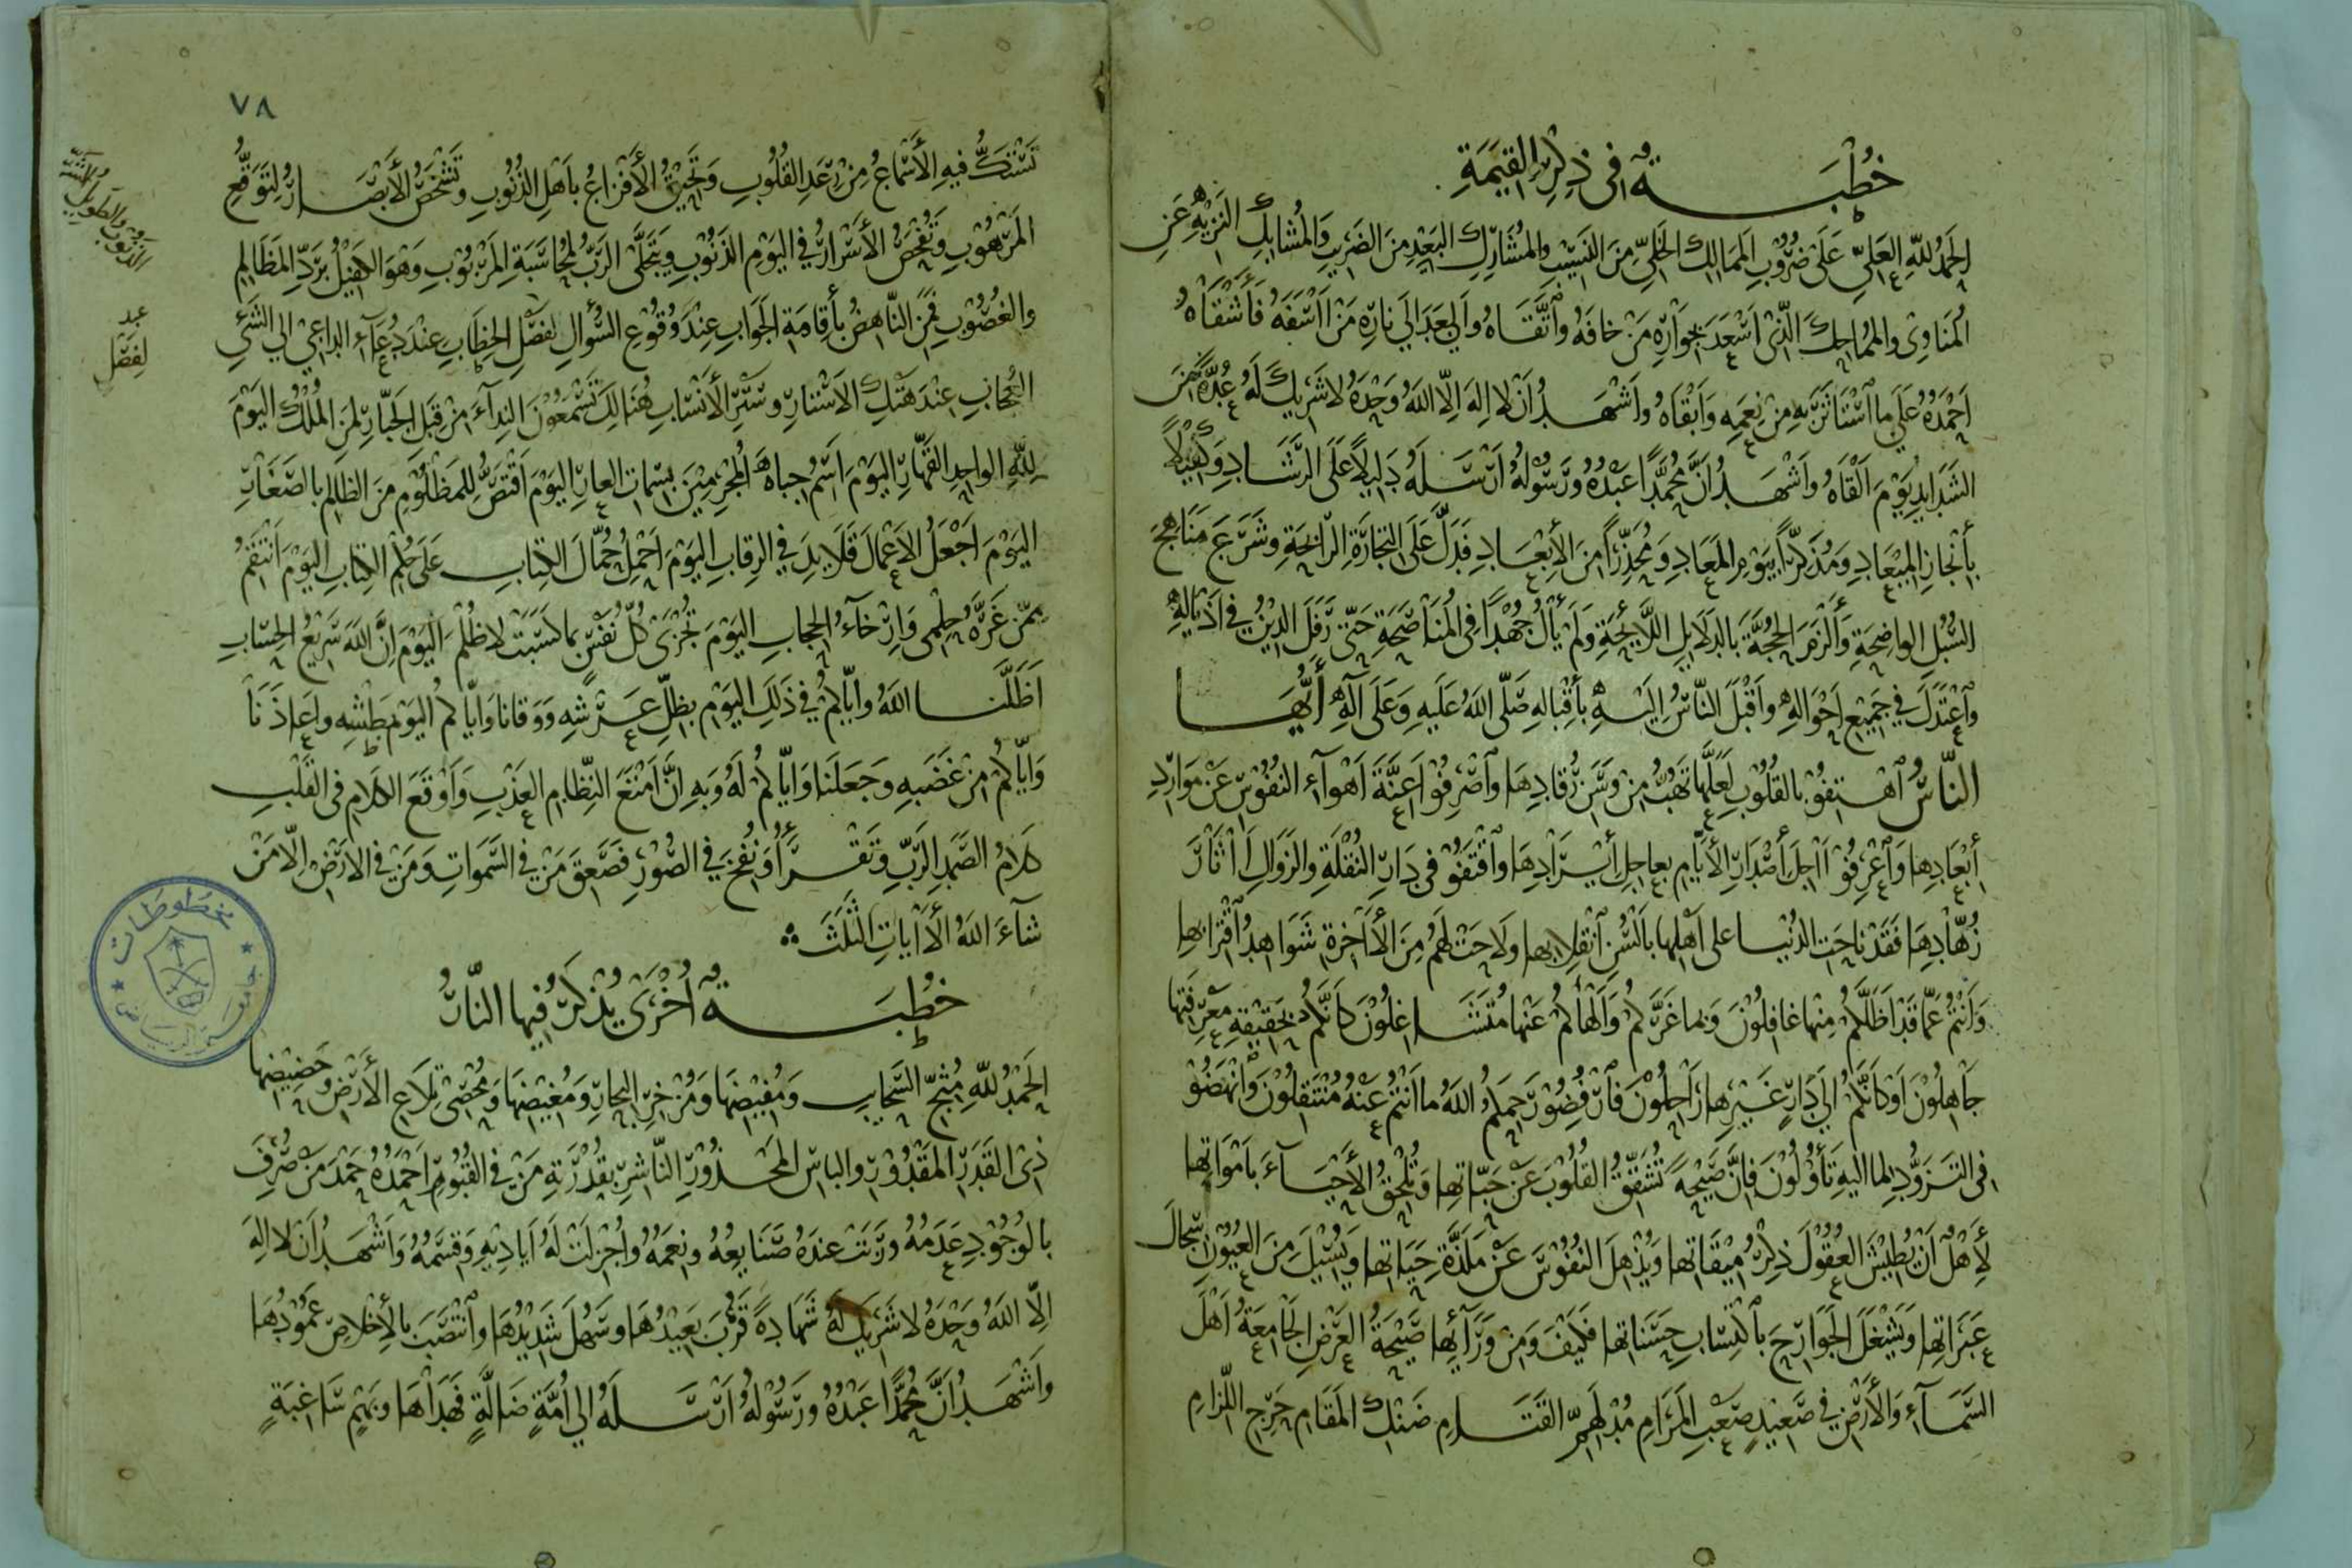 خُطْبَةٌ فى ذِكْرِ القِيٰمَةِ
الحَمْدُ لِلّٰهِ العَلِىِّ عَلَى ضُرُوبِ المَمَالِكِ الخَلِىِّ مِنَ النَّسِيبِ والمُشَارِكِ البَعِيْدِ مِنَ الضَرِيبِ وَالمُشَابِكِ النَزِيْهِ عَنِ
المُنَاوِىْ والمُمَاحِكِ الَّذِىْ اَسْعَدَ بِجَوَارِهِ مَنْ خافَهُ وَاتَّقَاهُ وأَبْعَدَ الى نارِهِ مَنْ اٰسَفَهُ فَأَشْقَاهُ
اَحْمَدُهُ عَلَى ما اسْتَأْثَرَ بِهِ مِنْ نِعَمِهِ وَابْقَاهُ واَشْهَدُ اَنْ لا اِلٰهَ اِلّا اللهُ وَحْدَهُ لا شَرِيكَ لَهُ عُدَّةً مِنَ
الشَدَايِدِ يَوْمَ اَلْقَاهُ وَاَشْهَدُ اَنَّ مُحَمَّداً عَبْدُهُ ورَسُوْلُهُ اَرْسَلَهُ دَلِيلاً عَلَى الرَّشَادِ وَكَفِيْلاً
بأِنْجَازِ المِيْعَادِ وَمُذَكِّراً بِيَوْمِ المَعَادِ وَمُحَذِّراً مِنَ الأِبْعَادِ فَدَلَّ عَلَى التِجَارَةِ الرّابِحَةِ وَشَرَعَ مَنَاهِجَ
السُّبُلِ الواضِحَةِ وَأَلْزَمَ الحُجَّةَ بالدَلَايِلِ اللَّايِحَةِ وَلَمْ يَأْلُ جُهْداً فِى المُنَاصَحَةِ حَتّى رَفَلَ الدِيْنُ فى اَذْيَالِهِ
وَاعْتَدَلَ فى جَمِيْعِ اَحْوَالِهِ وَاَقْبَلَ النَّاسُ اِلَيْهِ بأِقْبَالِهِ صَلّى اللهُ عَلَيهِ وَعَلَى آلِهِ أَيُّهَا
النَّاسُ اهْتِفُوْا بالقُلُوْبِ لَعَلَّها تَهُبُّ مِنْ وَسَنِ رُقَادِهَا وَاصْرِفُوْا اَعِنَّةَ اَهْوَآءِ النُفُوْسِ عَنْ مَوَارِدِ
أِبْعَادِها وَاعْرِفُوْا اٰجِلَ أصْدَارِ الأَيَّامِ بِعاجِلِ أيْرَادِهَا وَاقْتَفُوْا فى دَارِ النُقْلَةِ والزَوَالِ اٰثَارَ
زُهَّادِهَا فَقَدْ نَاحَتِ الدُنْيَا على اَهْلِها بأَلْسُنِ انْقِلابِها ولَاحَتْ لَهُمْ مِنَ الأٰخِرَةِ شَوَاهِدُ اقْتِرَابِها
وَاَنْتُمْ عَمَّا قَدْ اَظَلَّكُمْ مِنْها غافِلُوْنَ وَبما غَرَّكُمْ وَاَلْهَاكُمْ عَنْها مُتَشَاغِلُوْنَ كَأنَّكُمْ بحَقِيْقَةِ مَعْرِفَتِها
جَاْهِلُوْنَ اَوْ كَأَنَّكُمْ اِلَى دَارٍ غَيْرِهِا رَاْحِلُوْنَ فَارْفُضُوْا رَحِمَكُمُ اللهُ ما اَنْتُمْ عَنْهُ مُنْتَقِلُوْنَ وَانْهَضُوْا
فى التَزَوُّدِ لِما اِلَيْهِ تَأُوْلُوْنَ فَإنَّ صَيْحَةً تُشَقِّقُ القُلُوْبَ عَنْ حَبَّاتِها وَتُلْحِقُ الأَحْيَآءَ بأمْوَاتِها
لَأَهْلٌ اَنْ يُطِيْشَ العُقُوْلَ ذِكْرُ مِيْقَاتِها وَيُذْهِلَ النُفُوْسَ عَنْ مَلَذَّةِ حَيَاتِها وَيُسِيْلَ مِنَ العُيُوْنِ سِجَالَ
عَبَرَاتِها وَيَشْغَلَ الجَوَارِحَ بِاكْتِسَابِ حَسَنَاتِها فَكَيْفَ وَمِنْ وَرَآئِها صَيْحَةُ العَرْضِ الجَامِعَةُ اَهْلَ
السَّمَآءِ وَالأَرْضِ فى صَعِيْدٍ صَعْبِ المَرَامِ مُدْلَهِمِّ القَتَامِ ضَنْكِ المَقَامِ حَرِجِ اللِّزَامِ
٧٨
تَسْتَكُّ فيهِ الأَسْمَاعُ مِنْ رَعْدِ القُلُوبِ وَتَحِيْقُ الأَفْزَاعُ بأَهْلِ الذُنُوبِ وتَشْخَصُ الأَبْصَارُ لِتَوَقُّعِ
المَرْهُوْبِ وَتُفْحَصُ الأَسْرَارُ فى اليَوْمِ الذَنُوْبِ وَيَتَجَلَّى الرَبُّ لِمُحَاسَبَةِ المَرْبُوبِ وَهوَ الكَفِيْلُ بِرَدِّ المَظَالِمِ
والغُصُوْبِ فَمَنِ النَّاهِضُ بأِقَامَةِ الجَوَابِ عِنْدَ وُقُوْعِ السُؤالِ لِفَصْلِ الخِطَابِ عِنْدَ دُعَآءِ الدَاعِىْ الى الشَىْءِ
العُجَابِ عِنْدَ هَتْكِ الاَسْتَارِ وسَتْرِ الأَنْسَابِ هُنَالِكَ تَسْمَعُوْنَ النِدَآءَ مِنْ قِبَلِ الجَبَّارِ لِمَنِ المُلْكُ اليَوْمَ
لِلّٰهِ الواحِدِ القَهَّارِ اليَوْمَ اَسِمُ جِباهَ المُجْرِمِيْنَ بِسِماتِ العارِ اليَوْمَ اَقْتَصُّ لِلمَظْلُوْمِ مِنَ الظالِمِ بالصَغَارِ
اليَوْمَ اَجْعَلُ الاَعْمَالَ قَلَايِدَ فى الرِقَابِ اليَوْمَ اَحْمِلُ حُمَّالَ الكِتَابِ عَلَى حُكْمِ الكِتَابِ اليَوْمَ اَنْتَقِمُ
مِمَّنْ غَرَّهُ حِلْمِى وَاِرْخَآءُ الحِجَابِ اليَوْمَ تُجْزَى كُلُّ نَفْسٍ بما كَسَبَتْ لا ظُلْمَ اليَوْمَ اِنَّ اللهَ سَرِيعُ الحِسَابِ
اَظَلَّنَا اللهُ واَيّاكُمْ فى ذَلِكَ اليَوْمِ بِظِلِّ عَرْشِهِ وَوَقانا وَايّاكُمْ اليَوْمَ بَطْشِهِ واَعَاذَنَا
وَايَّاكُمْ مِنْ غَضَبِهِ وَجَعَلَنا وَايّاكُمْ لَهُ وَبِهِ اِنَّ اَمْتَعَ النِظَامِ العَذْبِ وَاَوْقَعَ الكَلَامِ فى القَلْبِ
كَلامُ الصَمَدِ الرَبِّ وَتَقْرَأُ وَنُفِخَ فى الصُوْرِ فَصَعِقَ مَنْ فى السَّمٰوَاتِ وَمَنْ فى الارْضِ اِلّا مَنْ
شآءَ اللهُ الأيَاتِ الثَلٰثَ
خُطْبَةٌ اُخْرَى يُذْكَرُ فِيها النّارُ
الحَمْدُ لِلّٰهِ مُثِجِّ السَّحَابِ وَمُفِيْضِهَا وَمُزْخِرِ البِحَارِ وَمُغِيْضِهَا وَمُحْصِى تِلَاعِ الأَرْضِ وَحَضِيْضِها
ذِى القَدَرِ المَقْدُوْرِ والبَاسِ المَحْذُوْرِ النّاشِرِ بِقُدْرَتِهِ مَنْ فى القُبُوْرِ اَحْمَدُهُ حَمْدَ مَنْ صُرِفَ
بالوُجُوْدِ عَدَمُهُ ورَبَتْ عندَهُ صَنَايِعُهُ ونِعَمُهُ واُجْزِلَتْ لَهُ اَيَادِيْهِ وَقِسَمُهُ وَاَشْهَدُ اَنْ لا اِلٰهَ
اِلّا اللهُ وَحْدَهُ لا شَرِيكَ لَهُ شَهَادَةً قَرُبَ بَعِيْدُهَا وسَهُلَ شَدِيْدُهَا وَانْتَصَبَ بالأِخْلَاصِ عَمُوْدُهَا
وَاَشْهَدُ اَنَّ مُحَمَّداً عَبْدُهُ ورَسُوْلُهُ اَرْسَلَهُ الى اُمَّةٍ ضَالَّةٍ فَهَدَاهَا وبُهْمٍ سَاغِبَةٍ
الذنوب الطويل الشر
عند
لفصل
مخطوطات
جامعة الرياض